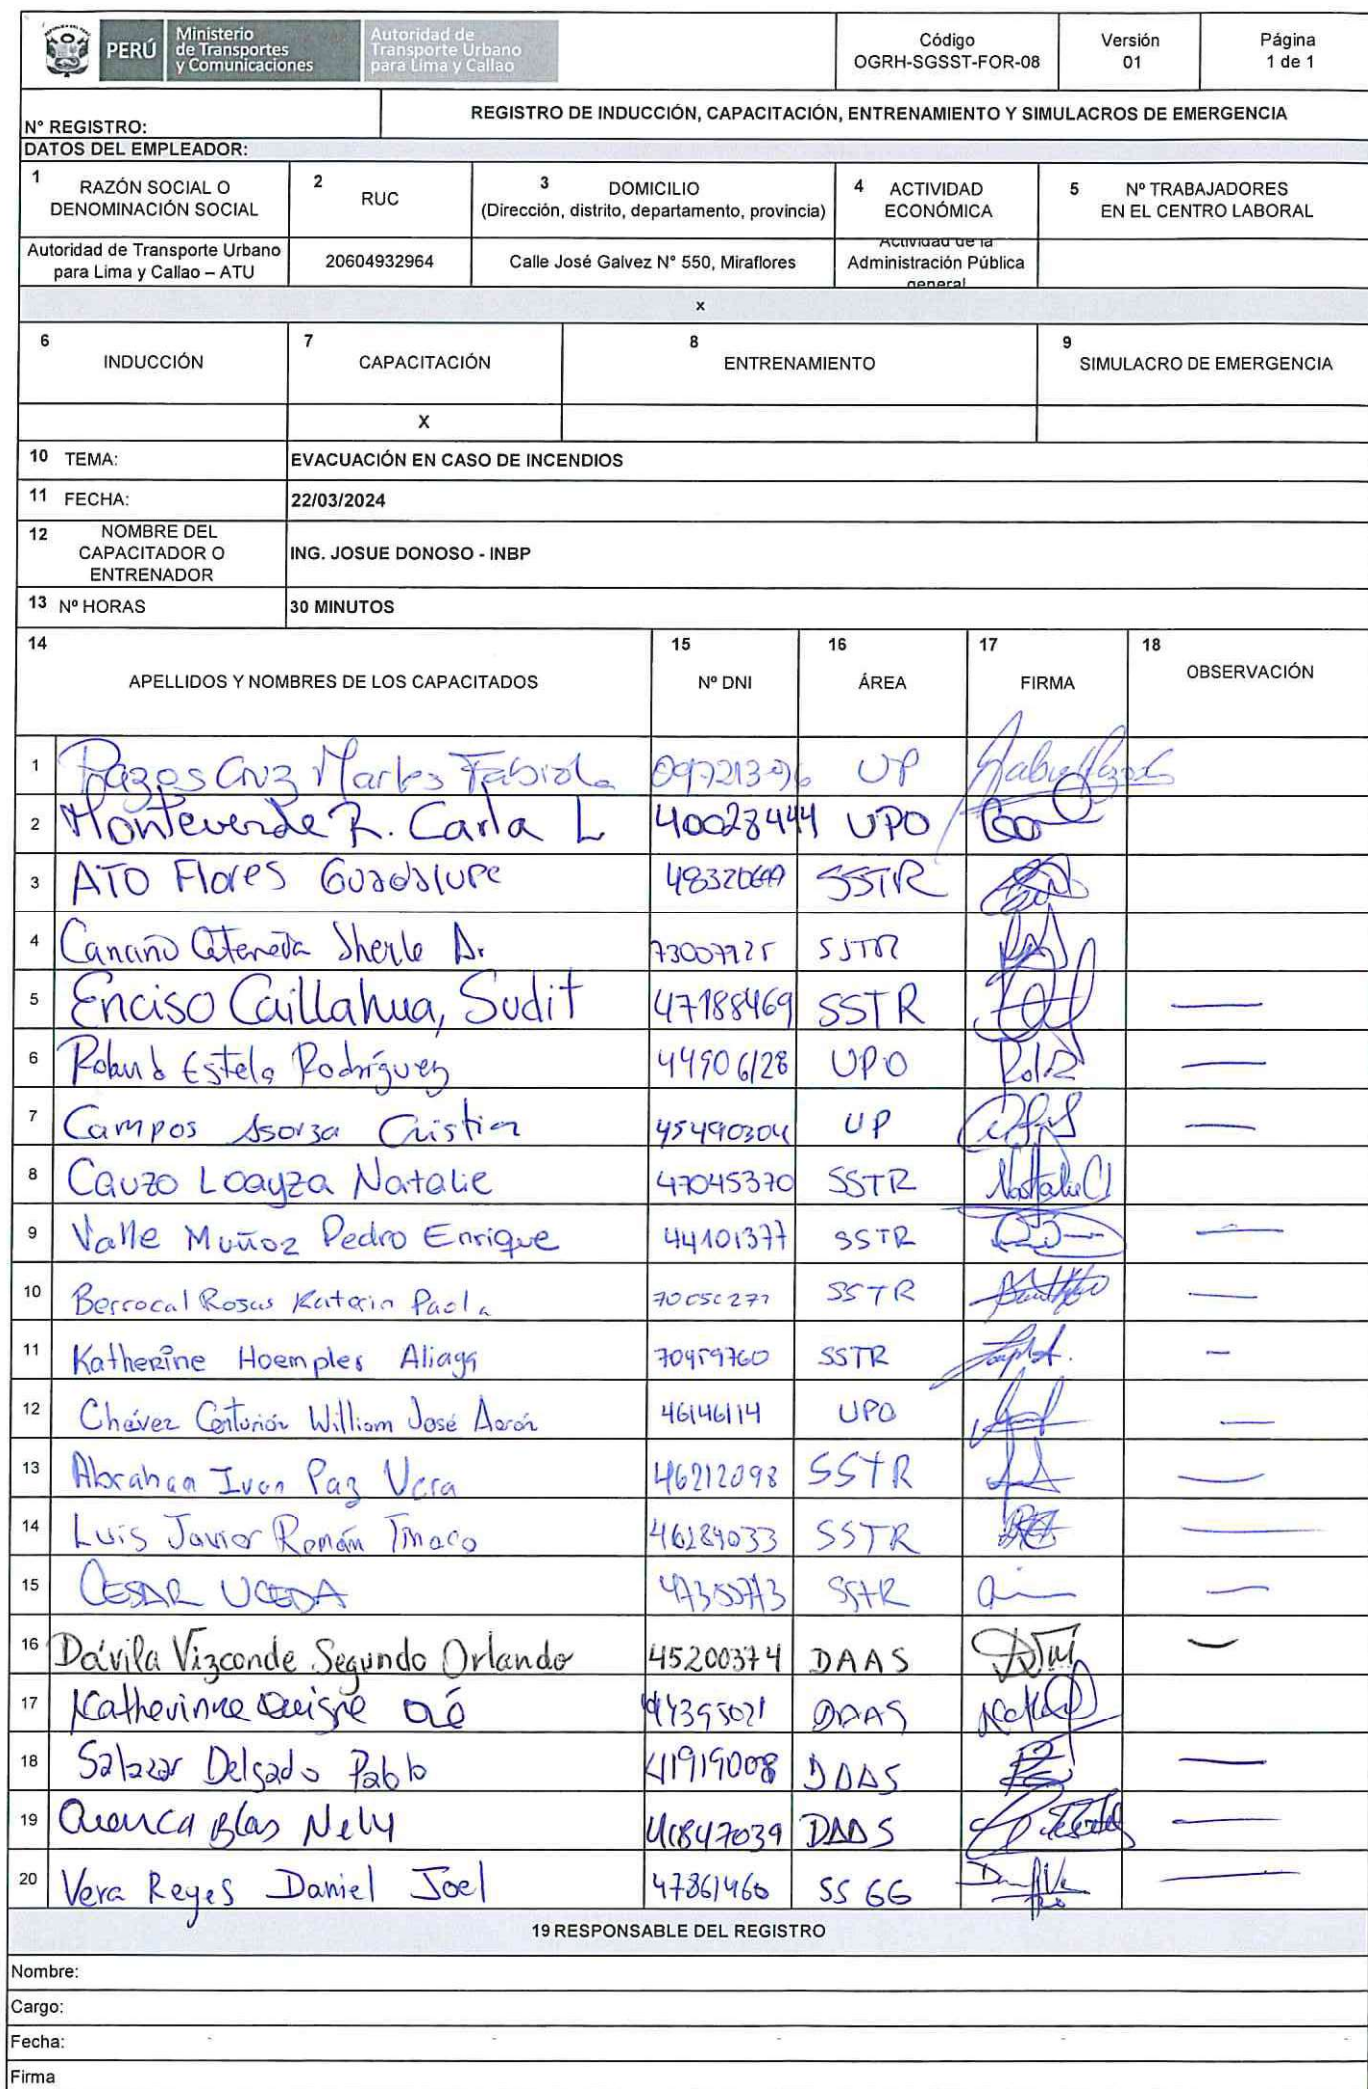 PERÚ
Ministerio
de Transportes
y Comunicaciones
Autoridad de
Transporte Urbano
para Lima y Callao
Código
OGRH-SGSST-FOR-08
Versión
01
Página
1 de 1
N° REGISTRO:
REGISTRO DE INDUCCIÓN, CAPACITACIÓN, ENTRENAMIENTO Y SIMULACROS DE EMERGENCIA
DATOS DEL EMPLEADOR:
1 RAZÓN SOCIAL O
DENOMINACIÓN SOCIAL
2 RUC
3 DOMICILIO
(Dirección, distrito, departamento, provincia)
4 ACTIVIDAD
ECONÓMICA
5 Nº TRABAJADORES
EN EL CENTRO LABORAL
Autoridad de Transporte Urbano
para Lima y Callao – ATU
20604932964
Calle José Galvez N° 550, Miraflores
Actividad de la
Administración Pública
general
x
6 INDUCCIÓN
7 CAPACITACIÓN
8 ENTRENAMIENTO
9 SIMULACRO DE EMERGENCIA
X
10 TEMA: EVACUACIÓN EN CASO DE INCENDIOS
11 FECHA: 22/03/2024
12 NOMBRE DEL
CAPACITADOR O
ENTRENADOR
ING. JOSUE DONOSO - INBP
13 Nº HORAS 30 MINUTOS
14 APELLIDOS Y NOMBRES DE LOS CAPACITADOS
15 Nº DNI
16 ÁREA
17 FIRMA
18 OBSERVACIÓN
1 Cruz Fabiola UP
2 Monteverde R. Carla L 40023444 UPO
3 ATO Flores Guadalupe SSTR
4 SSTR
5 Enciso Caillahua, Sudit 47188469 SSTR —
6 Roland Estela Rodríguez 44906128 UPO —
7 Campos Asorza Cristian 45490304 UP —
8 Cauzo Loayza Natalie 47045370 SSTR Nattalie
9 Valle Muñoz Pedro Enrique 44101377 SSTR —
10 Berrocal Rosas Katerin Paola SSTR —
11 Katherine Hoemples Aliaga 70959760 SSTR —
12 Chávez Centurión William José Aarón 46146114 UPO —
13 Abrahan Ivan Paz Vera 46212098 SSTR —
14 Luis Javier Román Tinaco 46289033 SSTR —
15 CESAR UCEDA SSTR —
16 Dávila Vizconde Segundo Orlando 45200374 DAAS —
17 Katherinne Quispe 44395021 DAAS
18 Salazar Delgado Pablo 41919008 DAAS —
19 Cuenca Blas Nely 40847039 DAAS —
20 Vera Reyes Daniel Joel 47861460 SS GG —
19 RESPONSABLE DEL REGISTRO
Nombre:
Cargo:
Fecha:
Firma